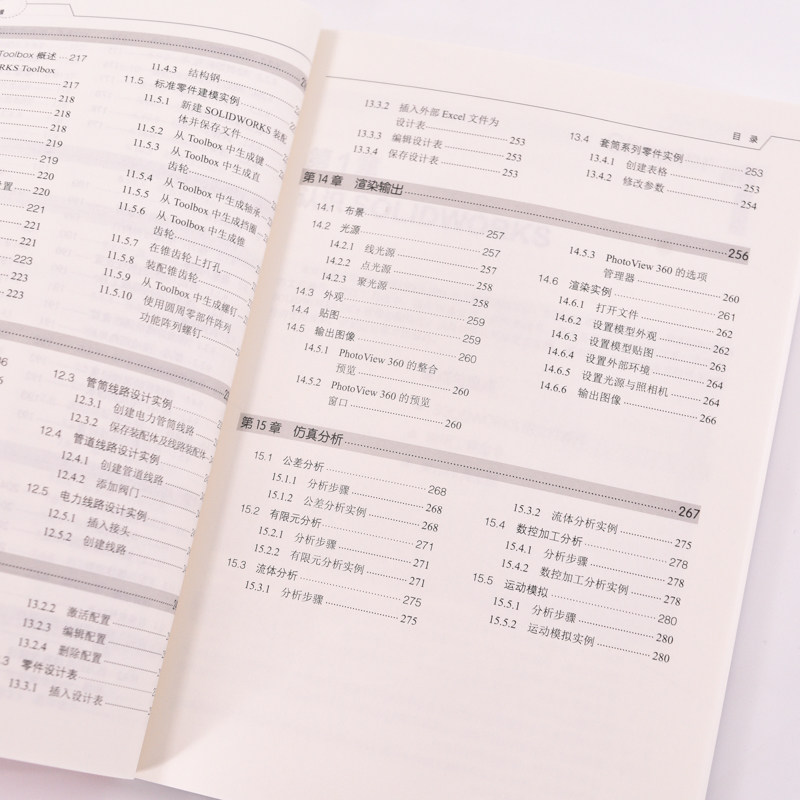 Toolbox 概述 217
RKS Toolbox
217
218
218
218
219
219
置 220
220
221
221
221
223
223
223
11.4.3 结构钢
11.5 标准零件建模实例
11.5.1 新建 SOLIDWORKS 装配
体并保存文件
11.5.2 从 Toolbox 中生成键
11.5.3 从 Toolbox 中生成直
齿轮
11.5.4 从 Toolbox 中生成轴承
11.5.5 从 Toolbox 中生成挡圈
11.5.6 从 Toolbox 中生成锥
齿轮
11.5.7 在锥齿轮上打孔
11.5.8 装配锥齿轮
11.5.9 从 Toolbox 中生成螺钉
11.5.10 使用圆周零部件阵列
功能阵列螺钉
12.3 管筒线路设计实例
12.3.1 创建电力管筒线路
12.3.2 保存装配体及线路装配体
12.4 管道线路设计实例
12.4.1 创建管道线路
12.4.2 添加阀门
12.5 电力线路设计实例
12.5.1 插入接头
12.5.2 创建线路
13.2.2 激活配置
13.2.3 编辑配置
13.2.4 删除配置
.3 零件设计表
13.3.1 插入设计表
目 录
13.3.2 插入外部 Excel 文件为
设计表 253
13.3.3 编辑设计表 253
13.3.4 保存设计表 253
13.4 套筒系列零件实例 253
13.4.1 创建表格 253
13.4.2 修改参数 254
第14章 渲染输出 256
14.1 布景 257
14.2 光源 257
14.2.1 线光源 257
14.2.2 点光源 258
14.2.3 聚光源 258
14.3 外观 259
14.4 贴图 259
14.5 输出图像 260
14.5.1 PhotoView 360 的整合
预览 260
14.5.2 PhotoView 360 的预览
窗口 260
14.5.3 PhotoView 360 的选项
管理器 260
14.6 渲染实例 261
14.6.1 打开文件 262
14.6.2 设置模型外观 262
14.6.3 设置模型贴图 263
14.6.4 设置外部环境 264
14.6.5 设置光源与照相机 264
14.6.6 输出图像 266
第15章 仿真分析 267
15.1 公差分析 268
15.1.1 分析步骤 268
15.1.2 公差分析实例 268
15.2 有限元分析 271
15.2.1 分析步骤 271
15.2.2 有限元分析实例 271
15.3 流体分析 275
15.3.1 分析步骤 275
15.3.2 流体分析实例 275
15.4 数控加工分析 278
15.4.1 分析步骤 278
15.4.2 数控加工分析实例 278
15.5 运动模拟 280
15.5.1 分析步骤 280
15.5.2 运动模拟实例 280